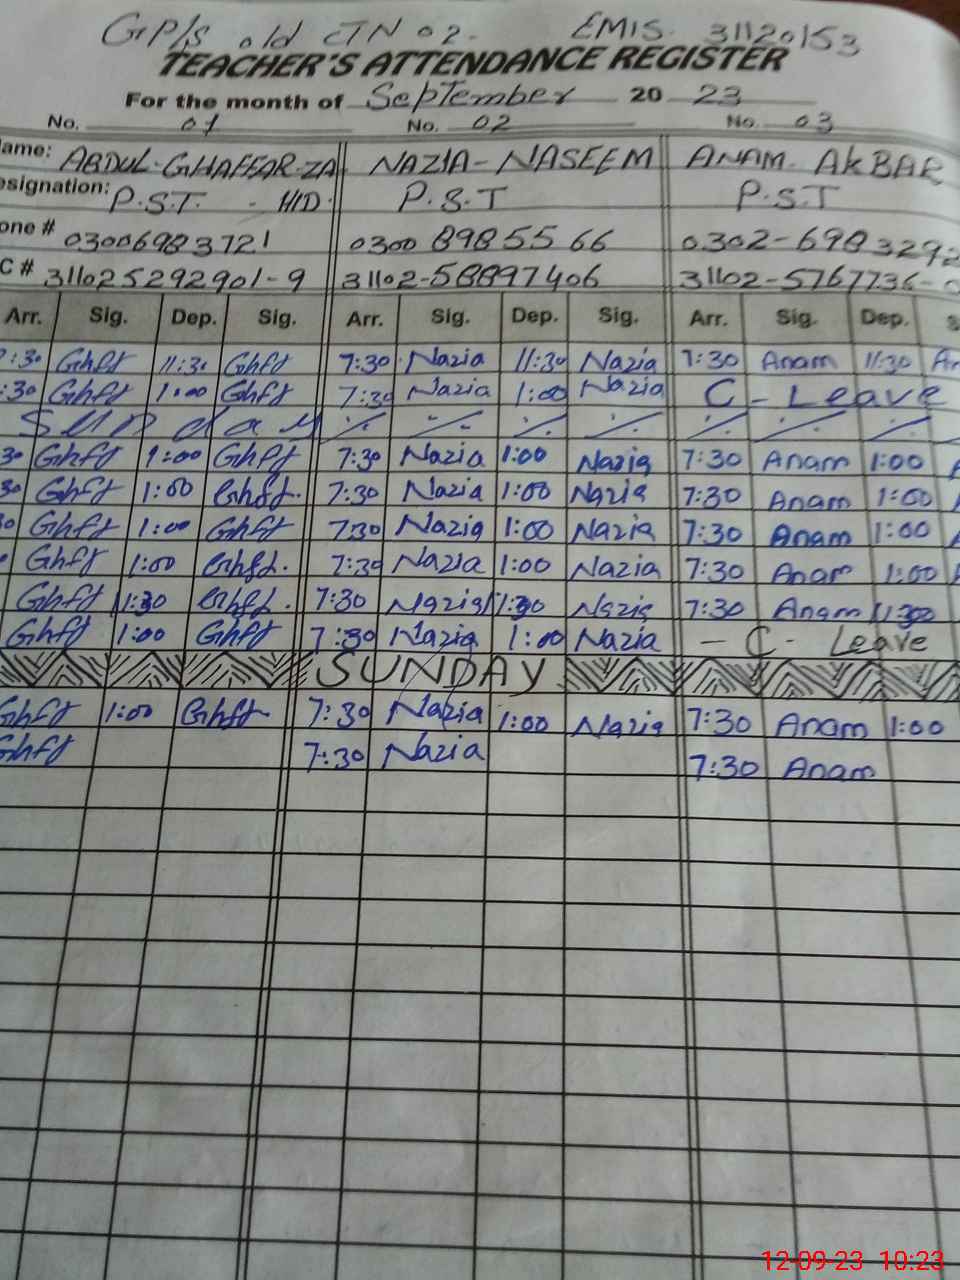 GP/s old JN 02. EMIS. 31120153
TEACHER'S ATTENDANCE REGISTER
For the month of September 20 23
No. 01 No. 02 No. 03
ame: ABDUL-GHAFFAR-ZA NAZIA-NASEEM ANAM. AKBAR
esignation: P.S.T. - H/D. P.S.T P.S.T
one # 03006983721 0300 8985566 0302-6983292
C # 311025292901-9 31102-58897406 31102-5767736-0
Arr. Sig. Dep. Sig. Arr. Sig. Dep. Sig. Arr. Sig. Dep. S
7:30 Ghff 11:30 Ghff 7:30 Nazia 11:30 Nazia 7:30 Anam 11:30 An
:30 Ghff 1:00 Ghff 7:30 Nazia 1:00 Nazia C - Leave
Sunday
30 Ghff 1:00 Ghff 7:30 Nazia 1:00 Nazia 7:30 Anam 1:00 A
30 Ghff 1:00 Ghff. 7:30 Nazia 1:00 Nazia 7:30 Anam 1:00
30 Ghff 1:00 Ghff 7:30 Nazia 1:00 Nazia 7:30 Anam 1:00
Ghff 1:00 Ghff. 7:30 Nazia 1:00 Nazia 7:30 Anam 1:00
Ghff 11:30 Ghff. 7:30 Nazia 11:30 Nazia 7:30 Anam 11:30
Ghff 1:00 Ghff 7:30 Nazia 1:00 Nazia - C - Leave
SUNDAY
Ghff 1:00 Ghff 7:30 Nazia 1:00 Nazia 7:30 Anam 1:00
Ghff 7:30 Nazia 7:30 Anam
12-09-23 10:23